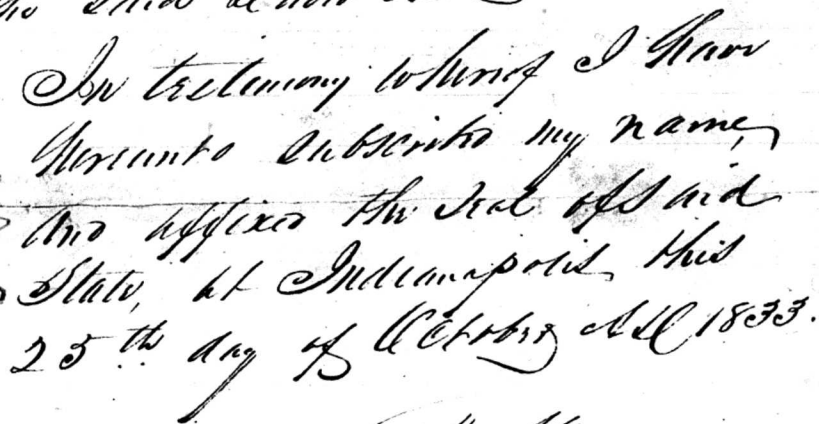 In testimony whereof I have
hereunto subscribed my name,
and affixed the seal of said
State, at Indianapolis this
25th day of October AD 1833.